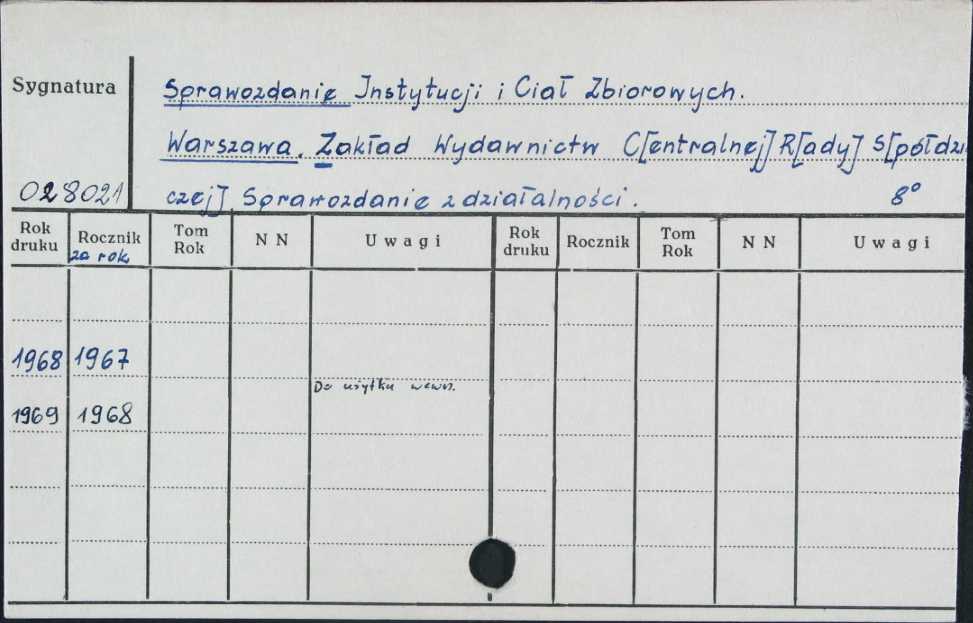 Sygnatura
Sprawozdanie Instytucji i Ciał Zbiorowych.
Warszawa. Zakład Wydawnictw C[entralnej] R[ady] S[półdzi
028021 czej] Sprawozdanie z działalności. 8°
Rok druku Rocznik Tom Rok N N Uwagi Rok druku Rocznik Tom Rok N N Uwagi
za rok
1968 1967
Do użytku wewn.
1969 1968